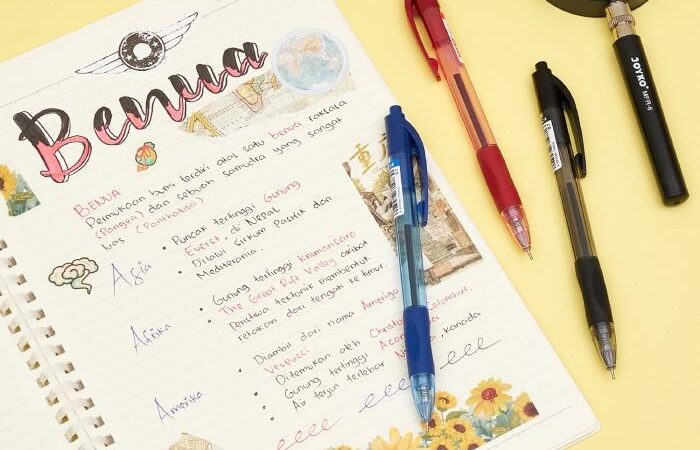 Benua
BENUA
Permukaan bumi terdiri atas satu benua raksasa
(Pangea) dan sebuah samudra yang sangat
luas (Panthalasa)
Asia
• Puncak tertinggi Gunung
Everst, di Nepal
• Dilalui Sirkum Pasifik dan
Mediterania.
Afrika
• Gunung tertinggi
The Great Rift Valley akibat
Peristiwa tektonik membentuk
retakan dari tengah ke timur.
Amerika
• Diambil dari nama Amerigo
Vespucci
• Ditemukan oleh Columbus.
• Gunung tertinggi
• Air terjun terlebar Kanada
重
JOYKO MFR-6